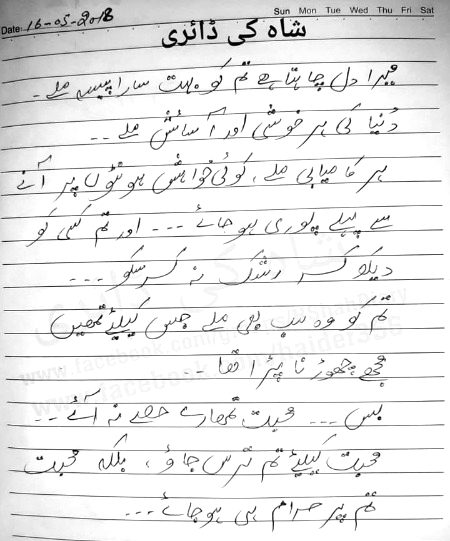 Sun Mon Tue Wed Thu Fri Sat
Date: 16-05-2018
شاہ کی ڈائری
میرا دل چاہتا ہے تم کو بہت سارا پیسہ ملے۔
دُنیا کی ہر خوشی اور آسائش ملے ۔۔
ہر کامیابی ملے، کوئی خواہش ہونٹوں پر آنے
سے پہلے پوری ہو جائے ۔۔۔ اور تم کسی کو
دیکھ کر رشک نہ کر سکو ۔۔۔
تم کو وہ سب بھی ملے جس کیلئے تمھیں
مجھے چھوڑنا پڑا تھا ۔
بس ۔۔۔ محبت تمھارے حصے نہ آئے ۔۔
محبت کیلئے تم ترس جاؤ ، بلکہ محبت
تم پر حرام ہی ہو جائے ۔۔۔